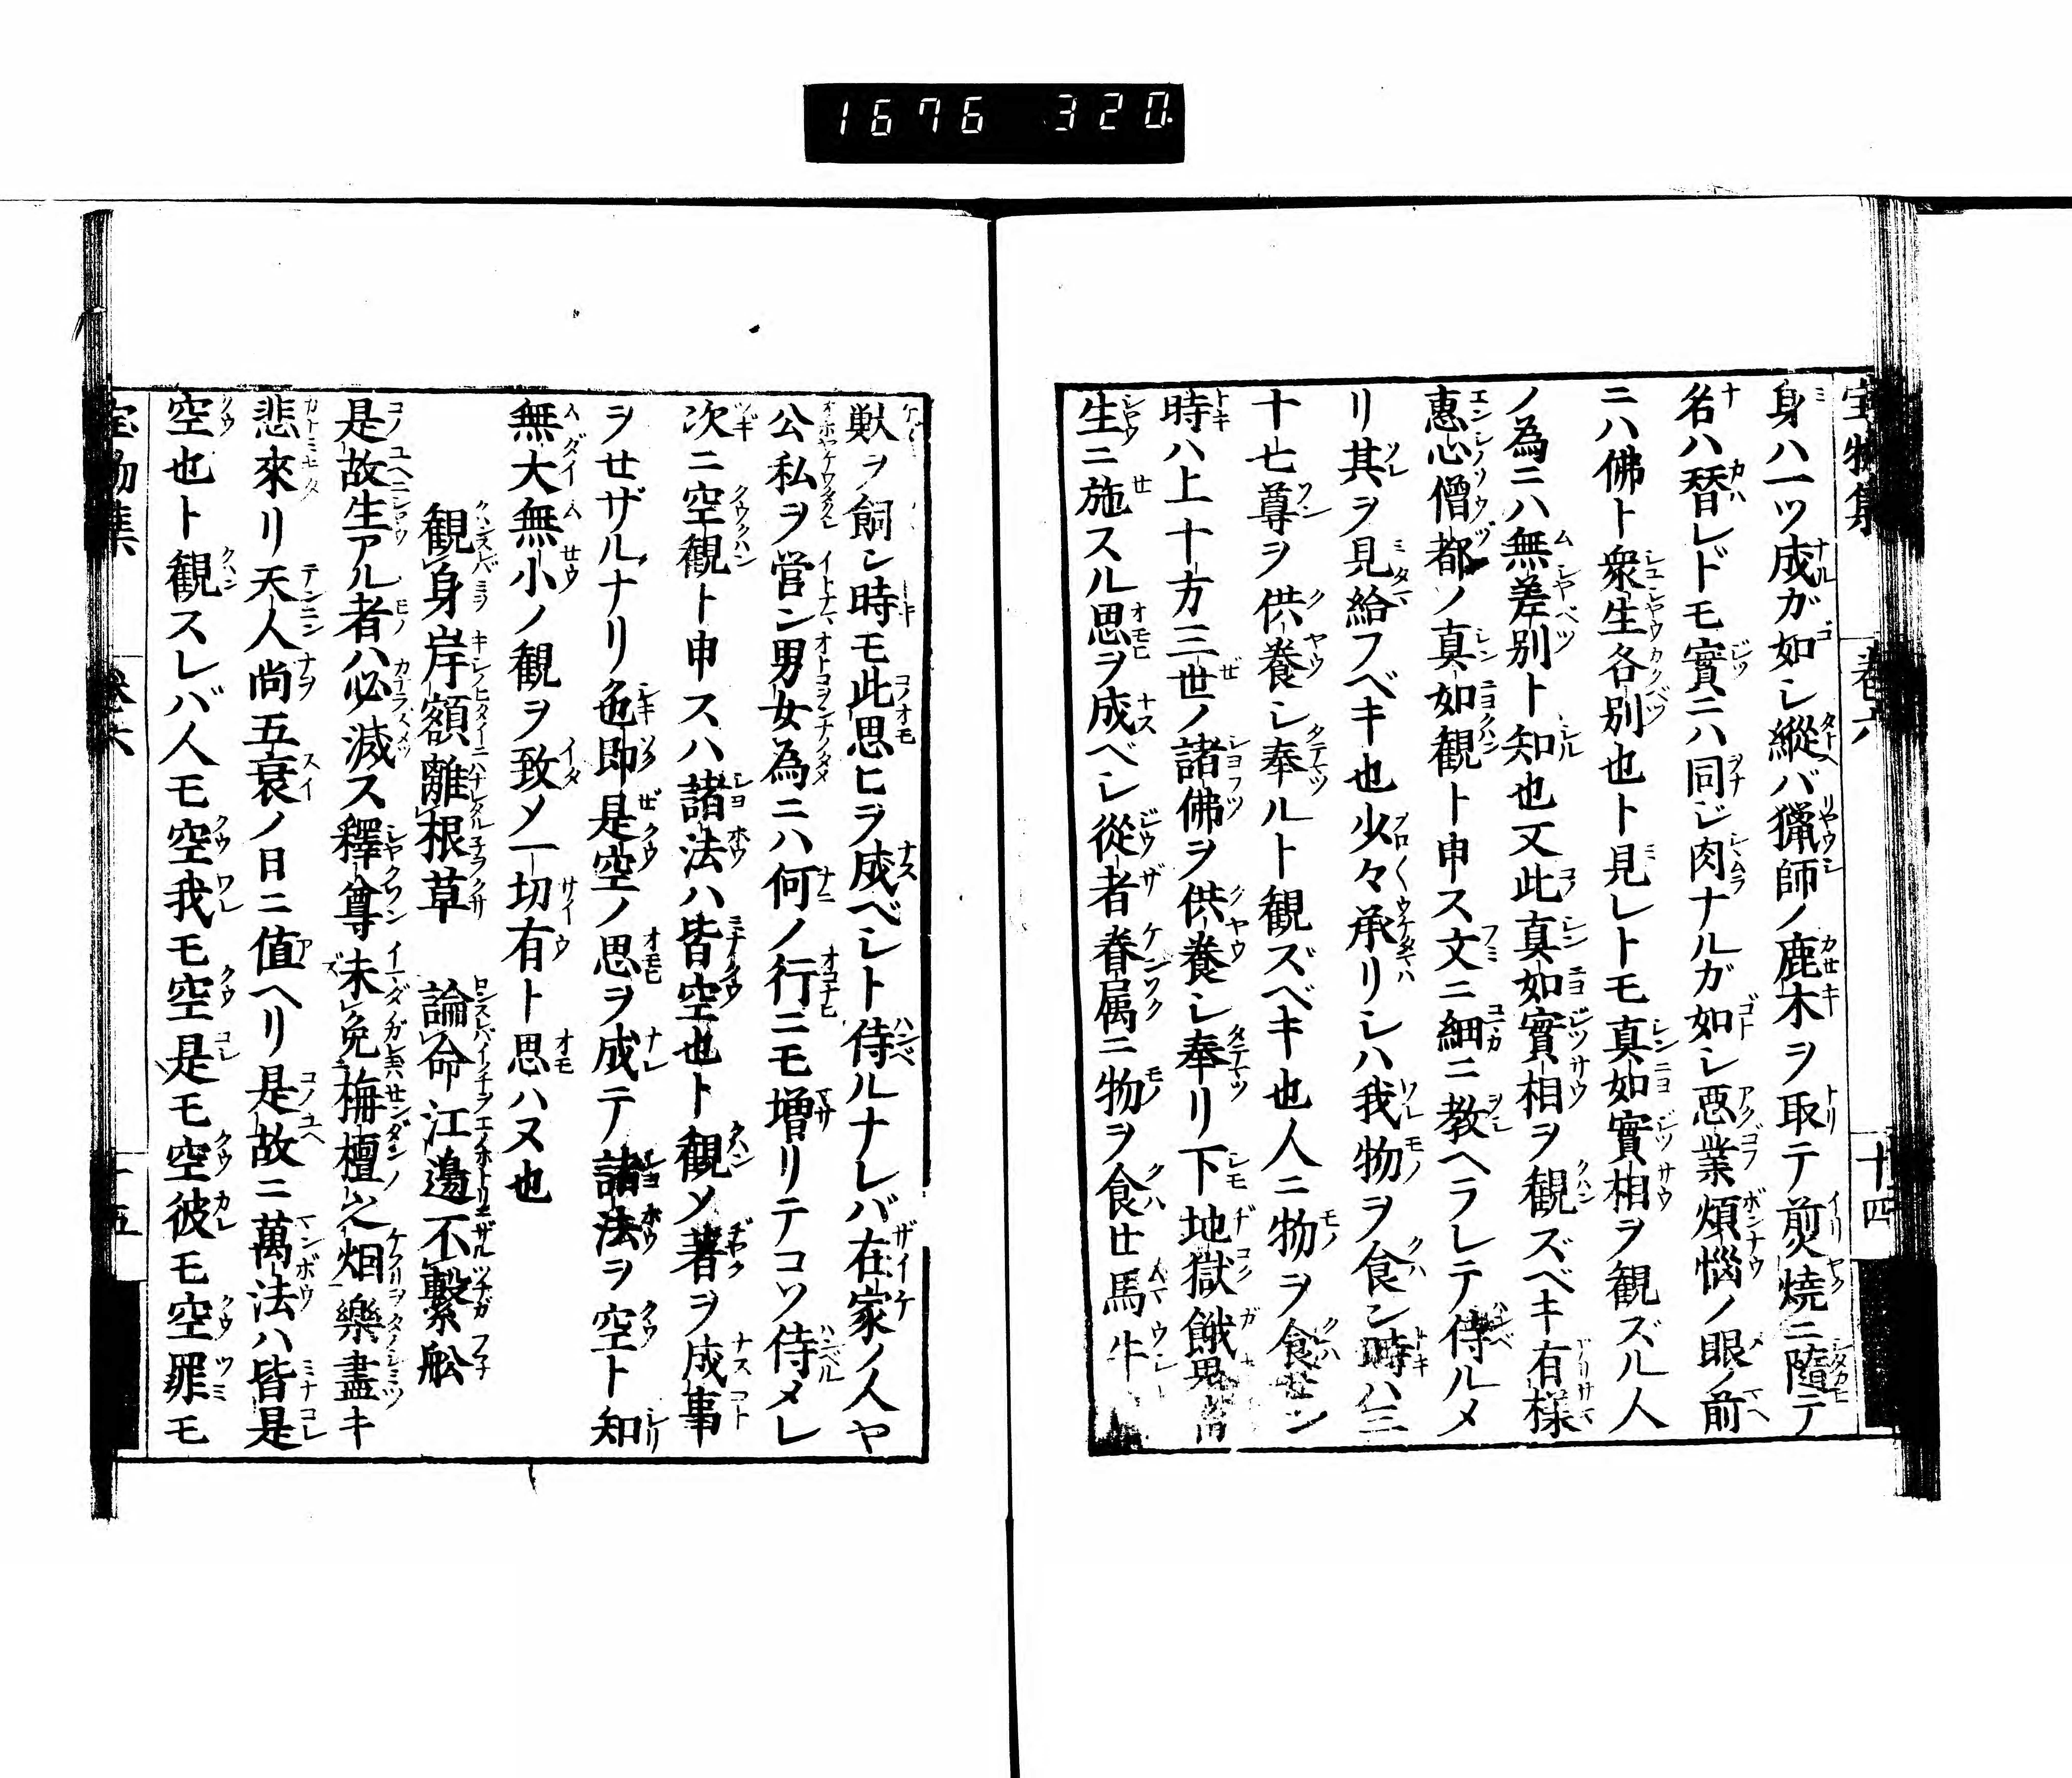 1676 320.
宝物集 巻六 十四
身ハ一ツ成ガ如シ縦バ猟師ノ鹿木ヲ取テ煎焼ニ隨テ
名ハ替レドモ實ニハ同ジ肉ナルガ如シ悪業煩惱ノ眼ノ前
ニハ佛ト衆生各別也ト見レトモ真如實相ヲ観ズル人
ノ為ニハ無差別ト知也又此真如實相ヲ観ズベキ有様
惠心僧都ノ真如観ト申ス文ニ細ニ教ヘラレテ侍ルメ
リ其ヲ見給フベキ也少々承リシハ我物ヲ食ン時ハ三
十七尊ヲ供養シ奉ルト観ズベキ也人ニ物ヲ食セン
時ハ上十方三世ノ諸佛ヲ供養シ奉リ下地獄餓鬼畜
生ニ施スル思ヲ成ベシ從者眷属ニ物ヲ食セ馬牛
獣ヲ飼シ時モ此思ヒヲ成ベシト侍ルナレバ在家ノ人ヤ
公私ヲ営ン男女為ニハ何ノ行ニモ増リテコソ侍メレ
次ニ空観ト申スハ諸法ハ皆空也ト観メ著ヲ成事
ヲセザルナリ色即是空ノ思ヲ成テ諸法ヲ空ト知
無大無小ノ観ヲ致メ一切有ト思ハヌ也
観身岸額離根草 論命江邊不繫舩
是故生アル者ハ必滅ス釋尊未免栴檀之烟樂盡キ
悲來リ天人尚五衰ノ日ニ値ヘリ是故ニ萬法ハ皆是
空也ト観スレバ人モ空我モ空是モ空彼モ空罪モ
宝物集 巻六 十五